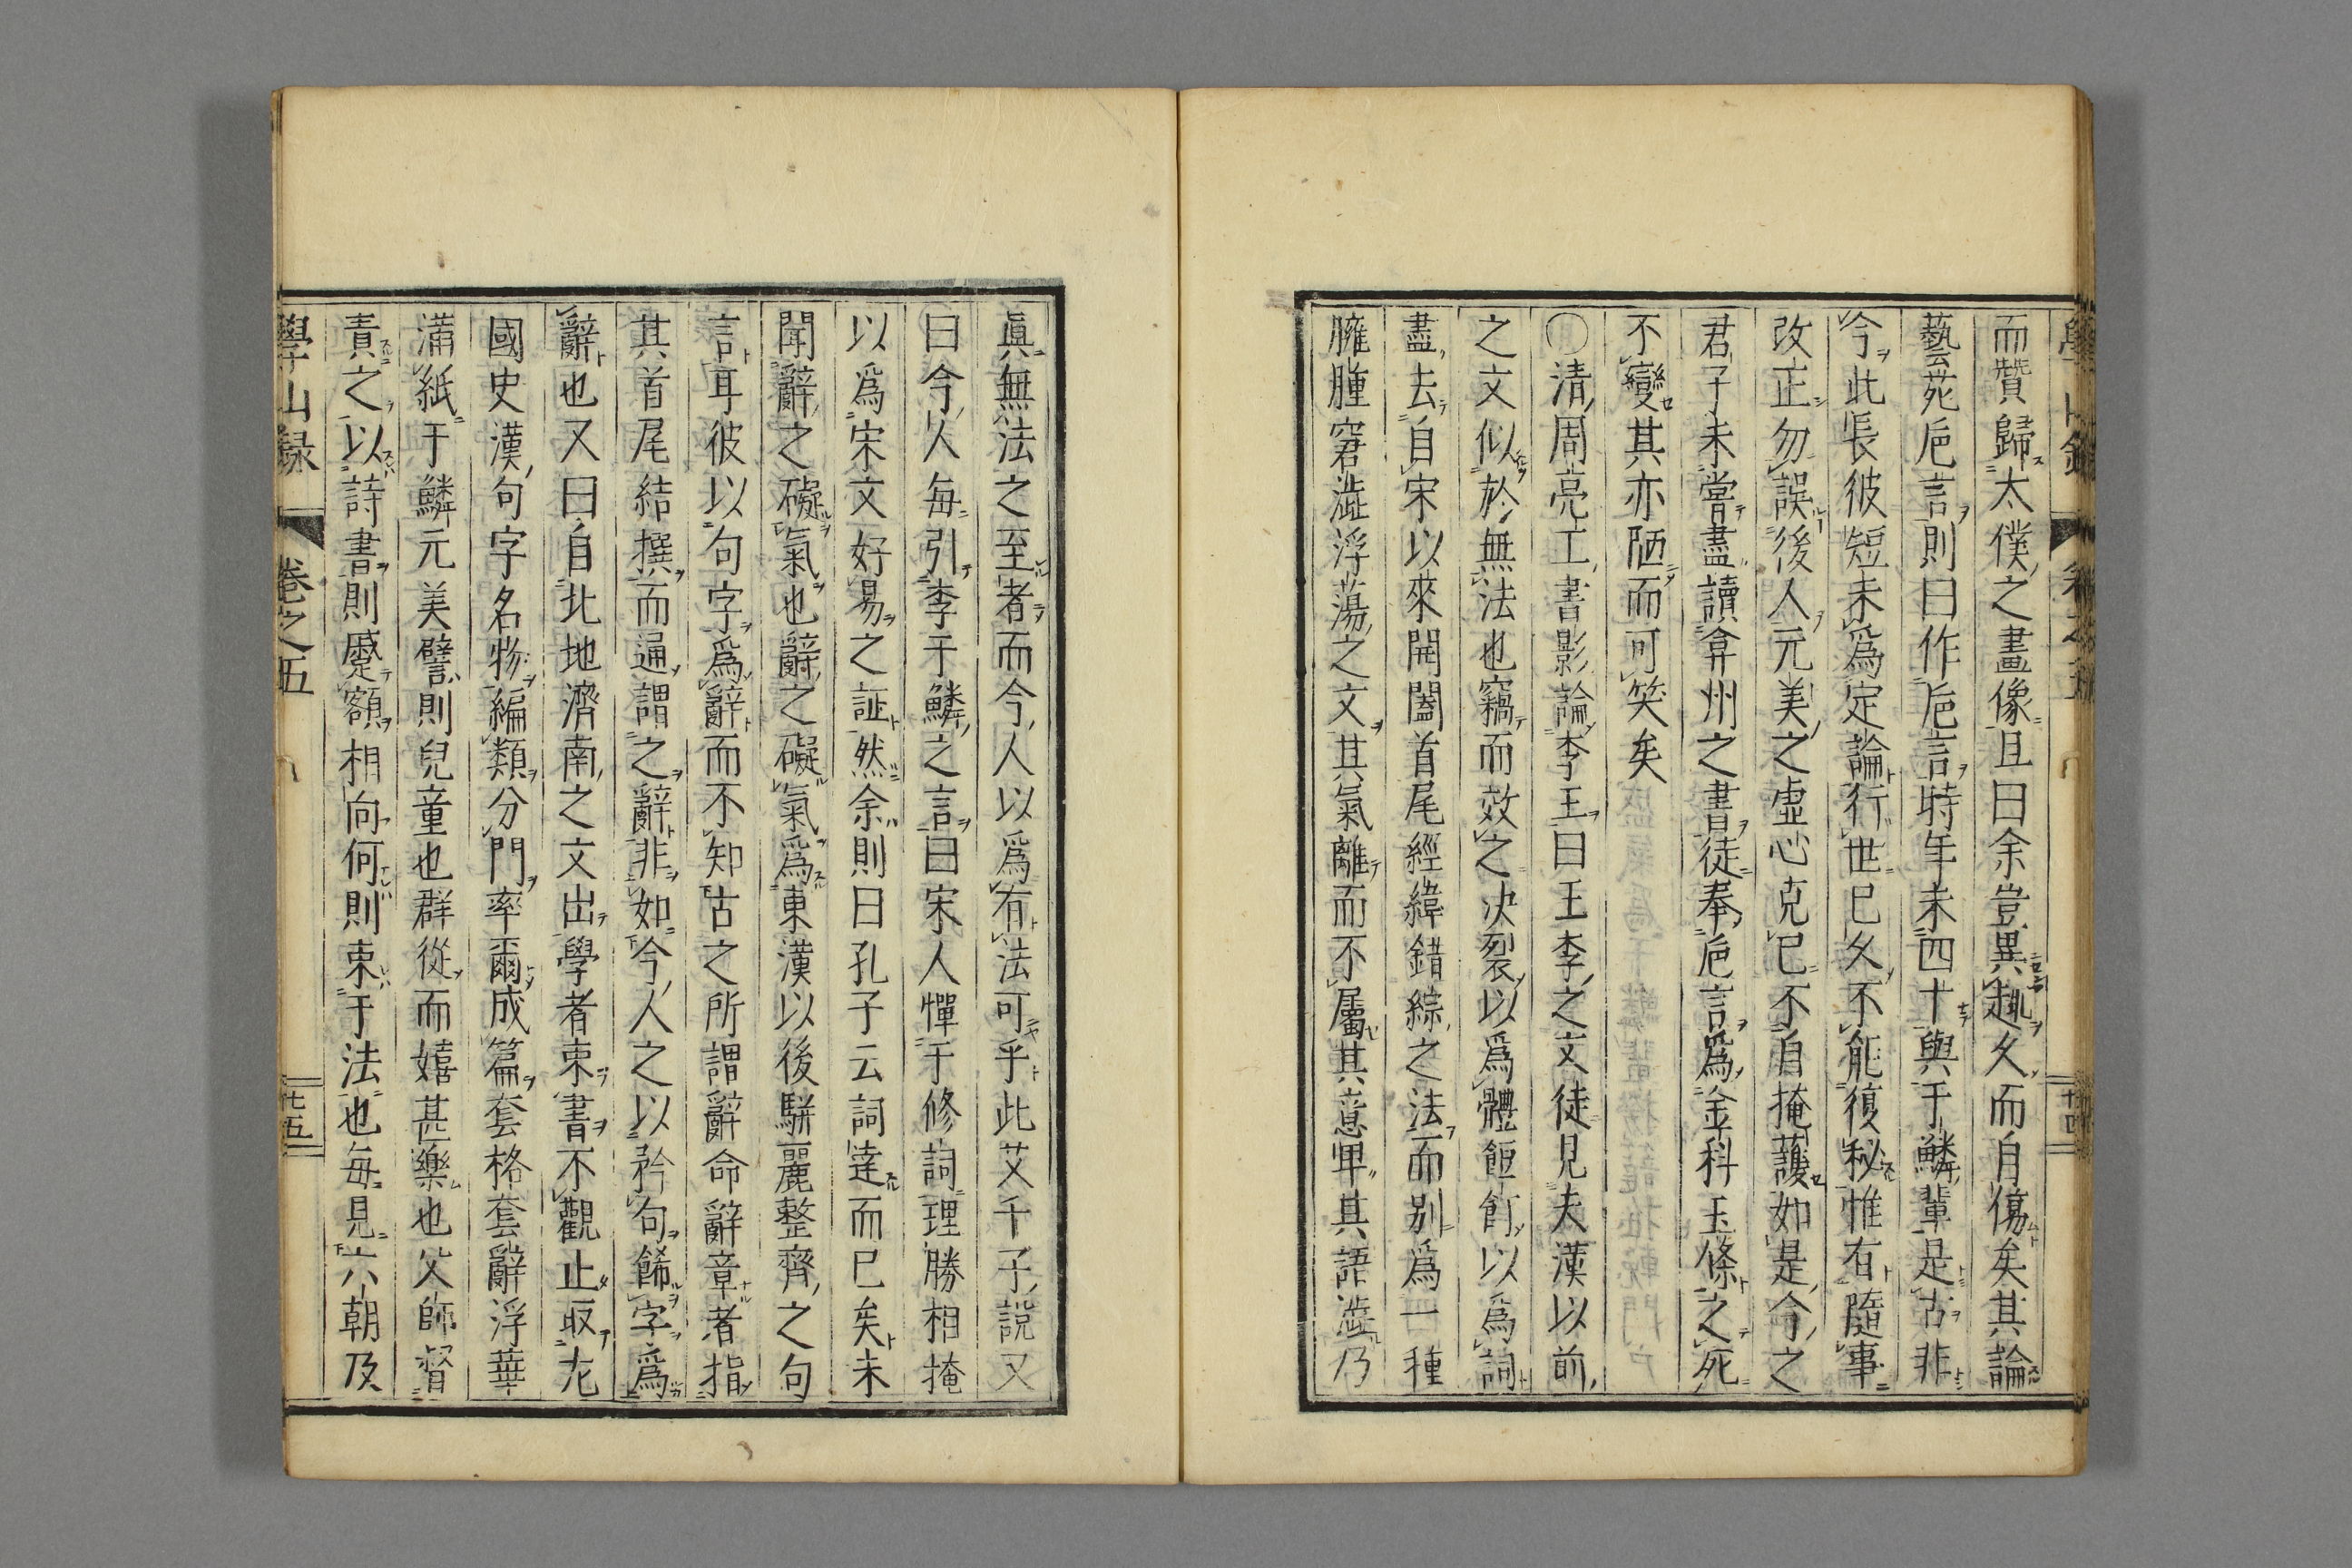 而贊歸太僕之畫像且曰余豈異趣久而自傷矣其論
藝苑巵言則曰作巵言時年未四十與于鱗輩是古非
今此長彼短未爲定論行世已久不能復秘惟有隨事
改正勿誤後人元美之虛心克己不自掩護如是今之
君子未嘗盡讀弇州之書徒奉巵言爲金科玉條之死
不變其亦陋而可笑矣
○清周亮工書影論李王曰王李之文徒見夫漢以前
之文似於無法也竊而效之决裂以爲體飣餖以爲詞
盡去自宋以來開闔首尾經緯錯綜之法而別爲一種
臃腫窘澁浮蕩之文其氣離而不屬其意卑其語澁乃
十四
眞無法之至者而今人以爲有法可乎此艾千子說又
曰今人每引李于鱗之言曰宋人憚于修詞理勝相掩
以爲宋文好易之証然余則曰孔子云詞達而已矣未
聞辭之礙氣也辭之礙氣爲東漢以後駢麗整齊之句
言耳彼以句字爲辭而不知古之所謂辭命辭章者指
其首尾結撰而通謂之辭非如今人之以矜句餙字爲
辭也又曰自北地濟南之文出學者束書不觀止取左
國史漢句字名物編類分門率爾成篇套格套辭浮華
滿紙于鱗元美譬則兒童也群從而嬉甚樂也父師督
責之以詩書則蹙額相向何則束于法也每見六朝及
學山録
卷之五
七五